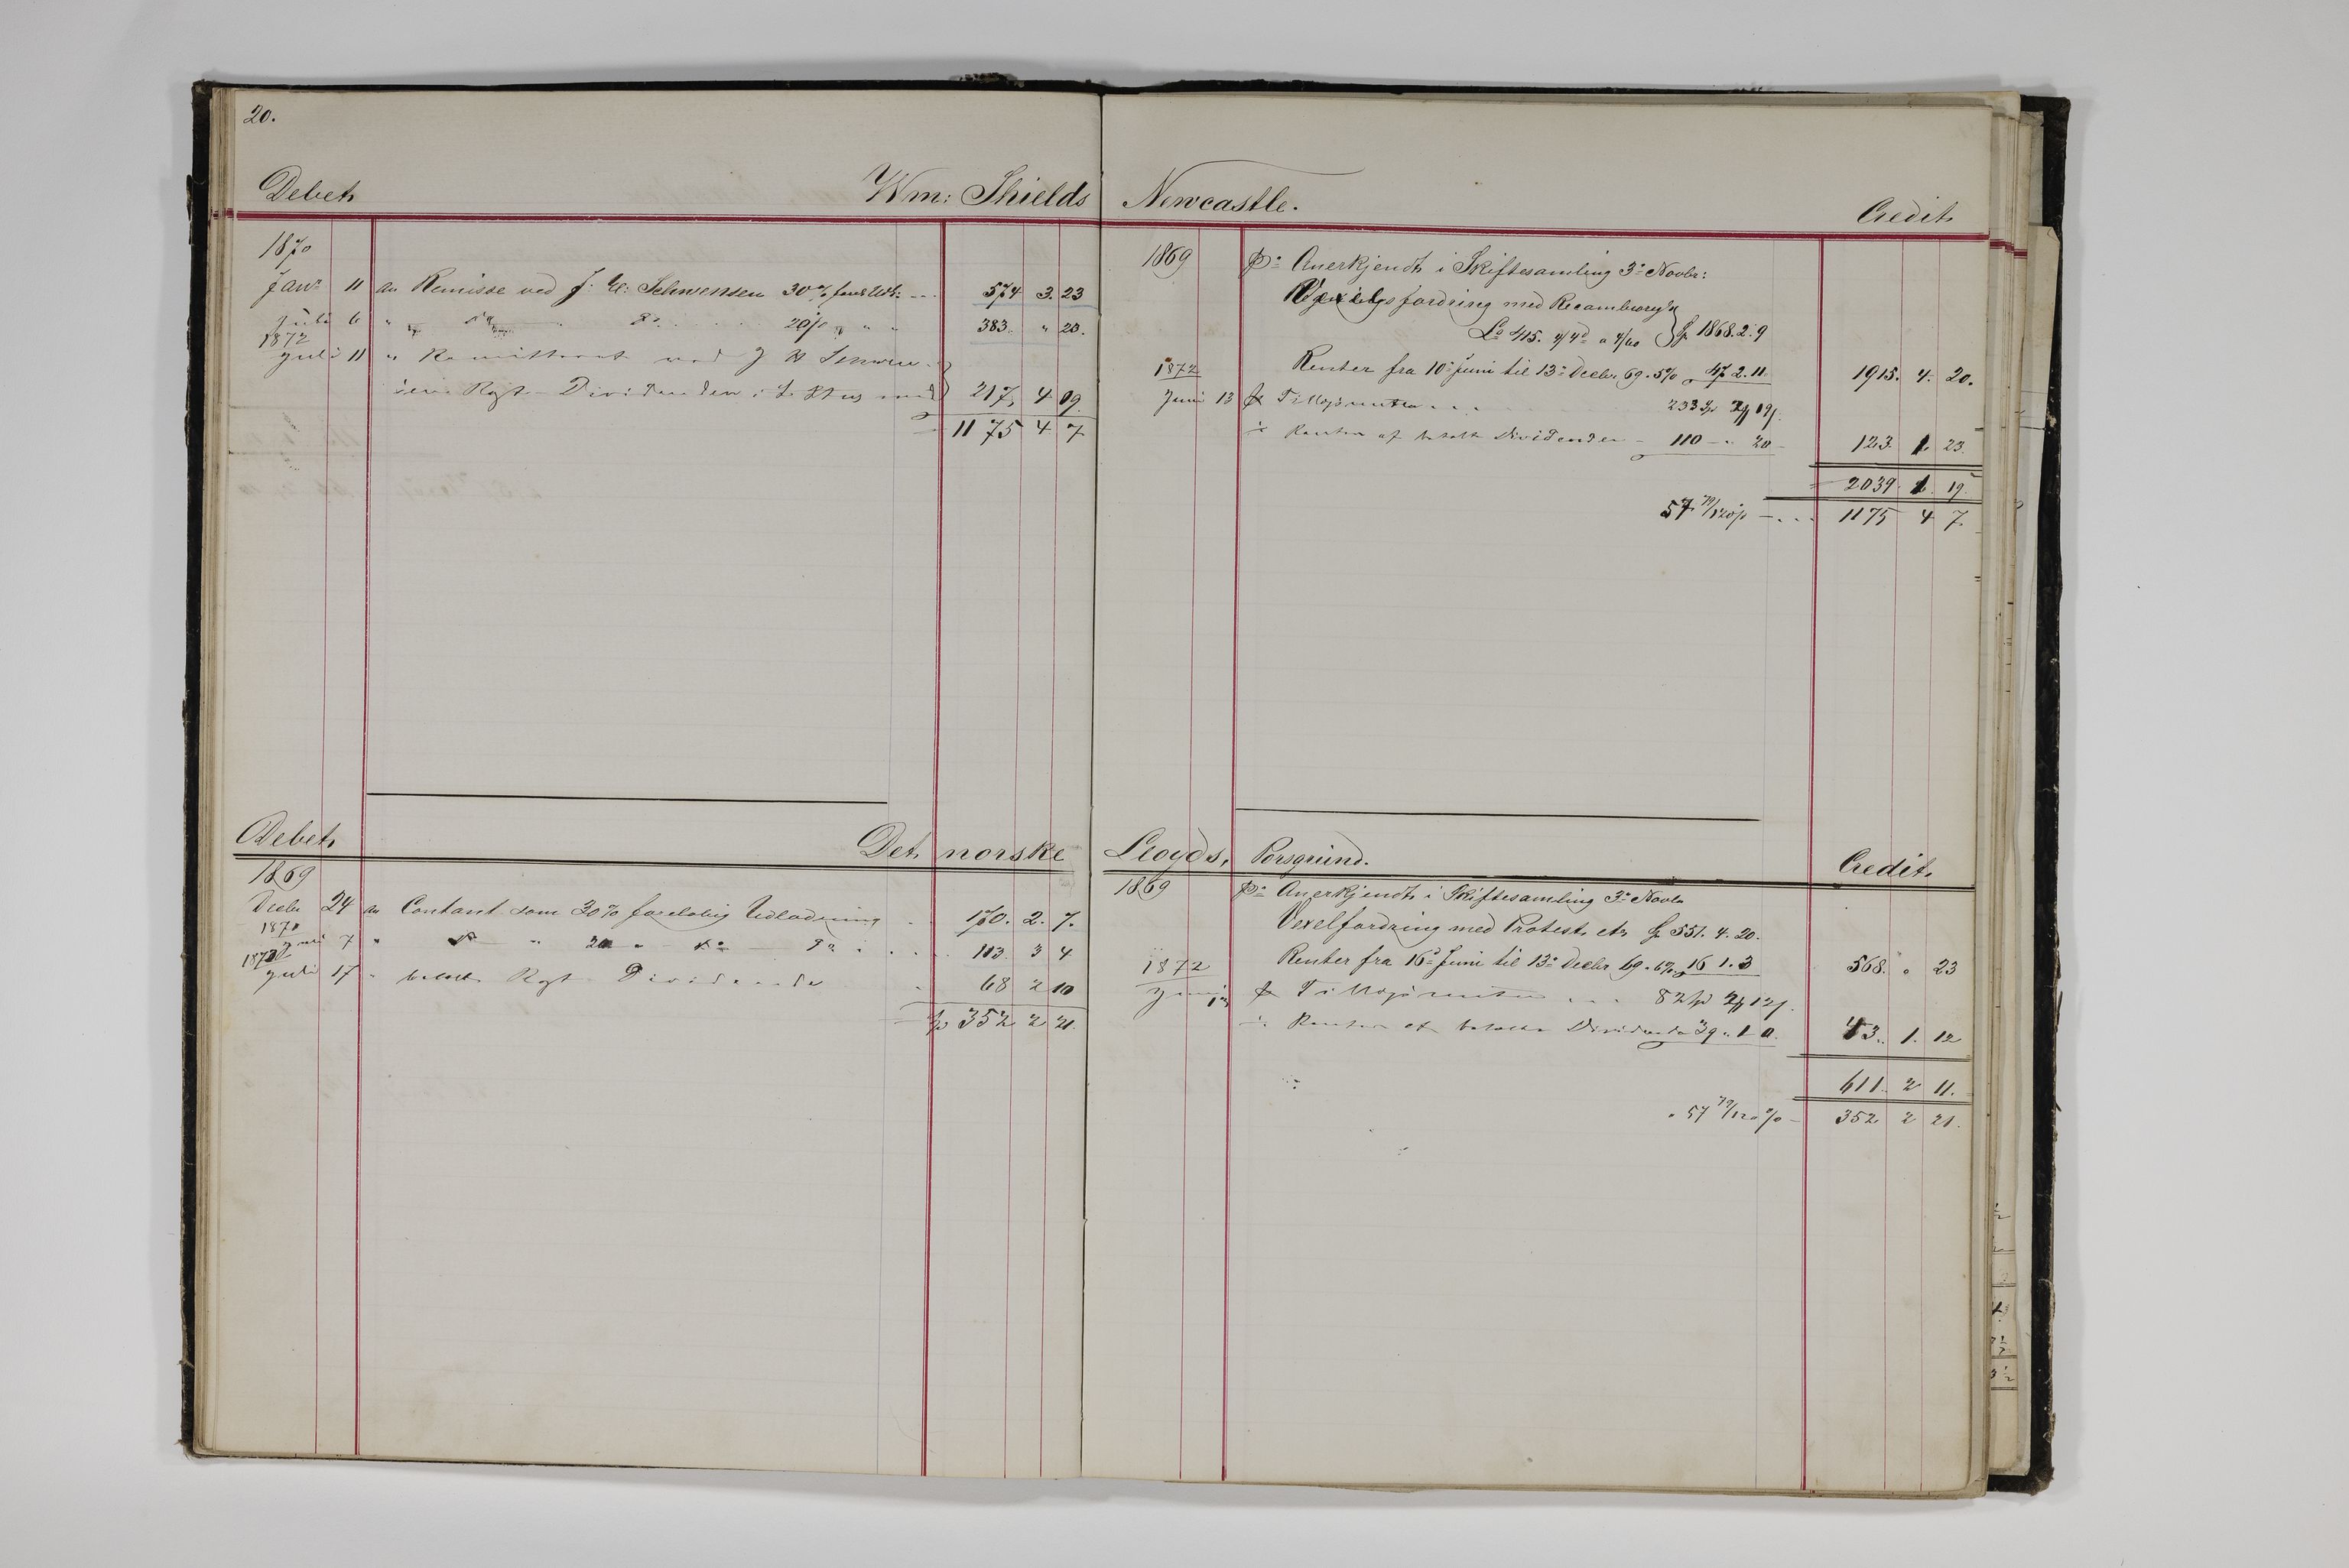 20.
Debet Wm: Shields Newcastle. Credit
1870
Janr 11 an Remisse ved J: H: Schwensen 30% forel Udl: 574 3. 23
Juli 6 " do do 20% " " 383. " 23.
1872
Juli 11 " Remitteret ved J H Schwen
sen Rest-Dividenden i 217 4 09
1175 4 7
1869 pr Anerkjendt i Skiftesamling 3e Novbr:
Vexelfordring med
£ 415. 4/4d a 4/60 Sp 1868. 2. 9
Renter fra 10e Juni til 13e Decbr. 69. 5% " 47. 2. 11 1915. 4. 20.
1872
Juni 13 Tillægsrenter 233 Sp 19
÷ Renter af betalt Dividender 110 " 20 123. 1 23.
2039. 1. 19.
57 79/120% 1175 4 7.
Debet Det norske Lloyds, Porsgrund. Credit.
1869
Decbr 24 an Contant som 30% foreløbig Udlodning 170. 2. 7.
1870
Juli 7 " do " 20 " do do 113 3 4
1872
Juli 17 " betalt Rest Dividende 68 2 10
Sp 352 2 21.
1869 pr Anerkjendt i Skiftesamling 3e Novbr
Vexelfordring med Protest. etc Sp 551. 4. 20.
Renter fra 16e Juni til 13e Decbr 69. 6% " 16 1. 3 568. " 23
1872
Juni 13 Tillægsrenter 82 Sp 12
÷ Renter af betalte Dividende 39 " 1 0. 43. 1. 12
611. 2 11.
" 57 79/120% 352 2 21.